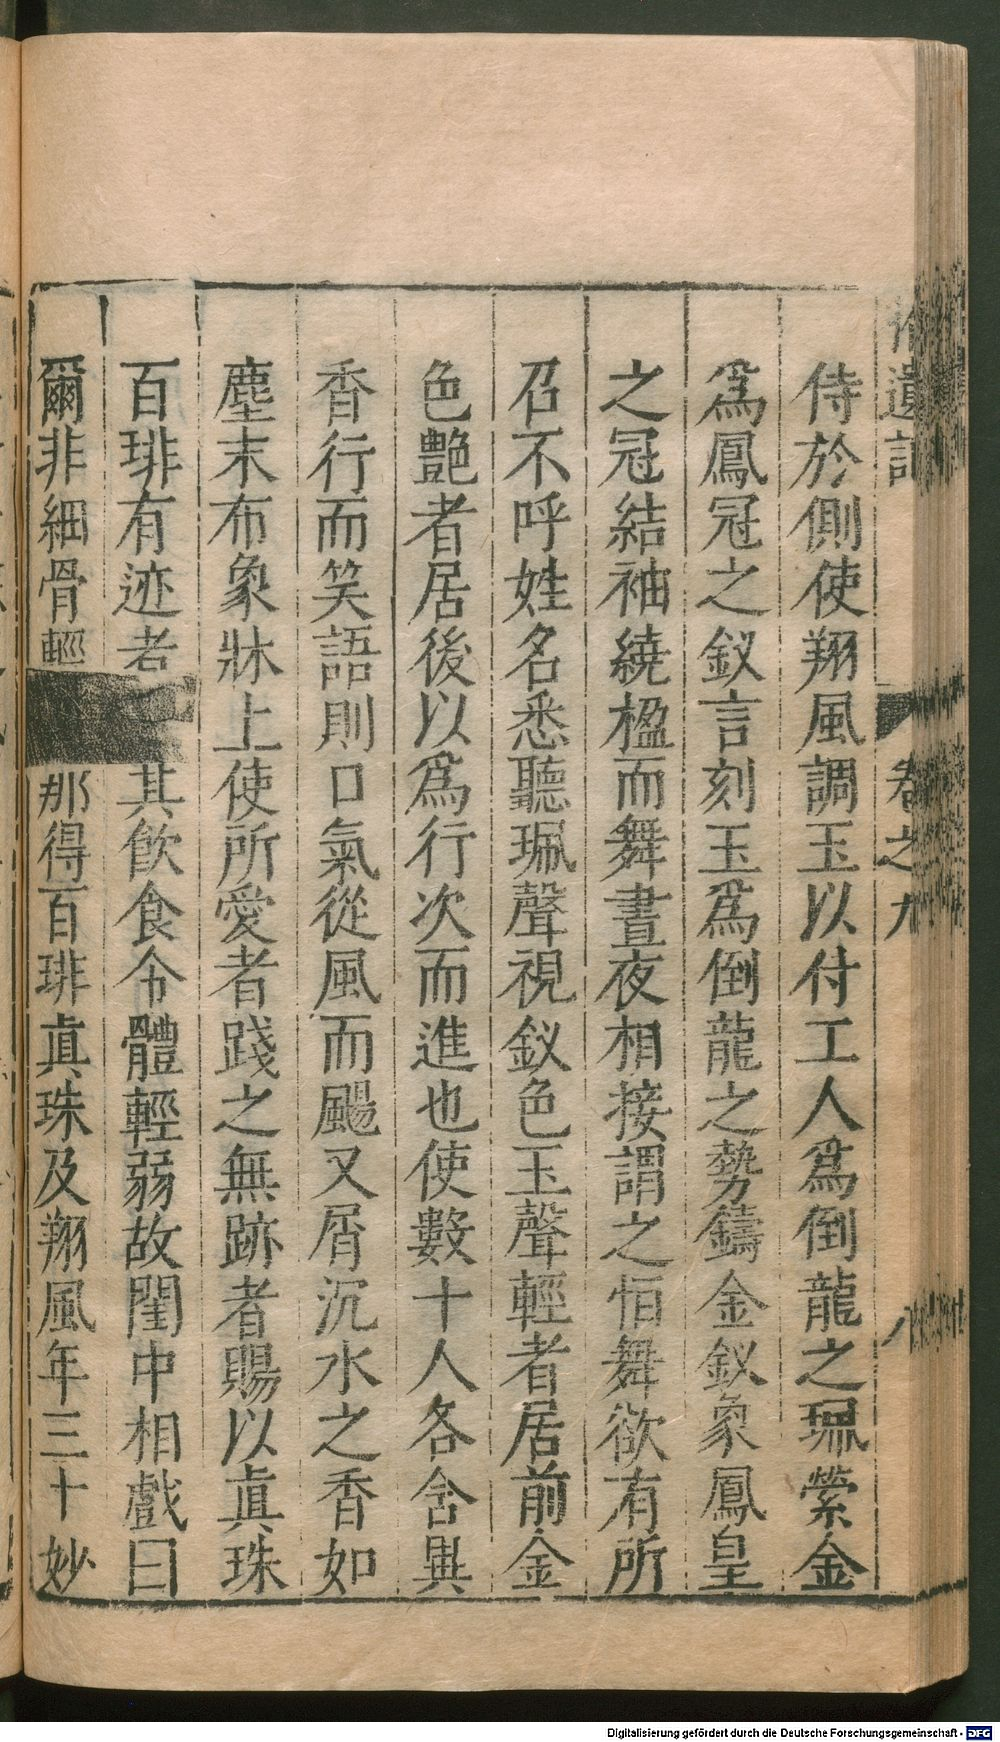 拾遺記 卷之九 八
侍於側使翔風調玉以付工人爲倒龍之珮縈金
爲鳳冠之釵言刻玉爲倒龍之勢鑄金釵象鳳皇
之冠結袖繞楹而舞晝夜相接謂之恒舞欲有所
召不呼姓名悉聽珮聲視釵色玉聲輕者居前金
色艶者居後以爲行次而進也使數十人各含異
香行而笑語則口氣從風而颺又屑沉水之香如
塵末布象牀上使所愛者踐之無跡者賜以真珠
百琲有迹者 其飲食令體輕弱故閨中相戲曰
爾非細骨輕 那得百琲真珠及翔風年三十妙
Digitalisierung gefördert durch die Deutsche Forschungsgemeinschaft - DFG